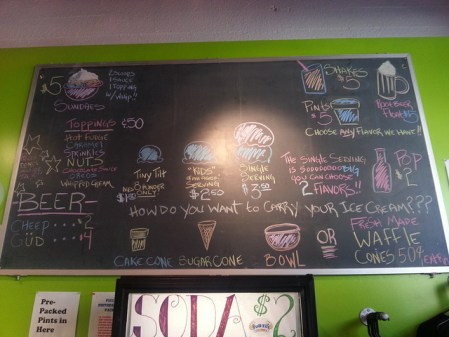 $5
SUNDAES
TOPPINGS $.50
HOT FUDGE
CARAMEL
SPRINKLES
NUTS
CHOCOLATE SAUCE
OREOS
WHIPPED CREAM
BEER
CHEEP .... $2
GÜD .... $4
TINY TILT
AND UNDER
ONLY
"KIDS"
SERVING
$2.50
SINGLE
SERVING
$3.50
SHAKES
$5
PINTS
$5
ROOT BEER
FLOAT $5
CHOOSE ANY FLAVOR WE HAVE!!
THE SINGLE SERVING
IS SOOOOOOO BIG
YOU CAN CHOOSE
2 FLAVORS!!
POP
2
HOW DO YOU WANT TO CARRY YOUR ICE CREAM???
CAKE CONE
SUGAR CONE
BOWL
OR
FRESH MADE
WAFFLE
CONES 50¢ EXTRA
Pre-
Packed
Pints in
Here
SODA $2